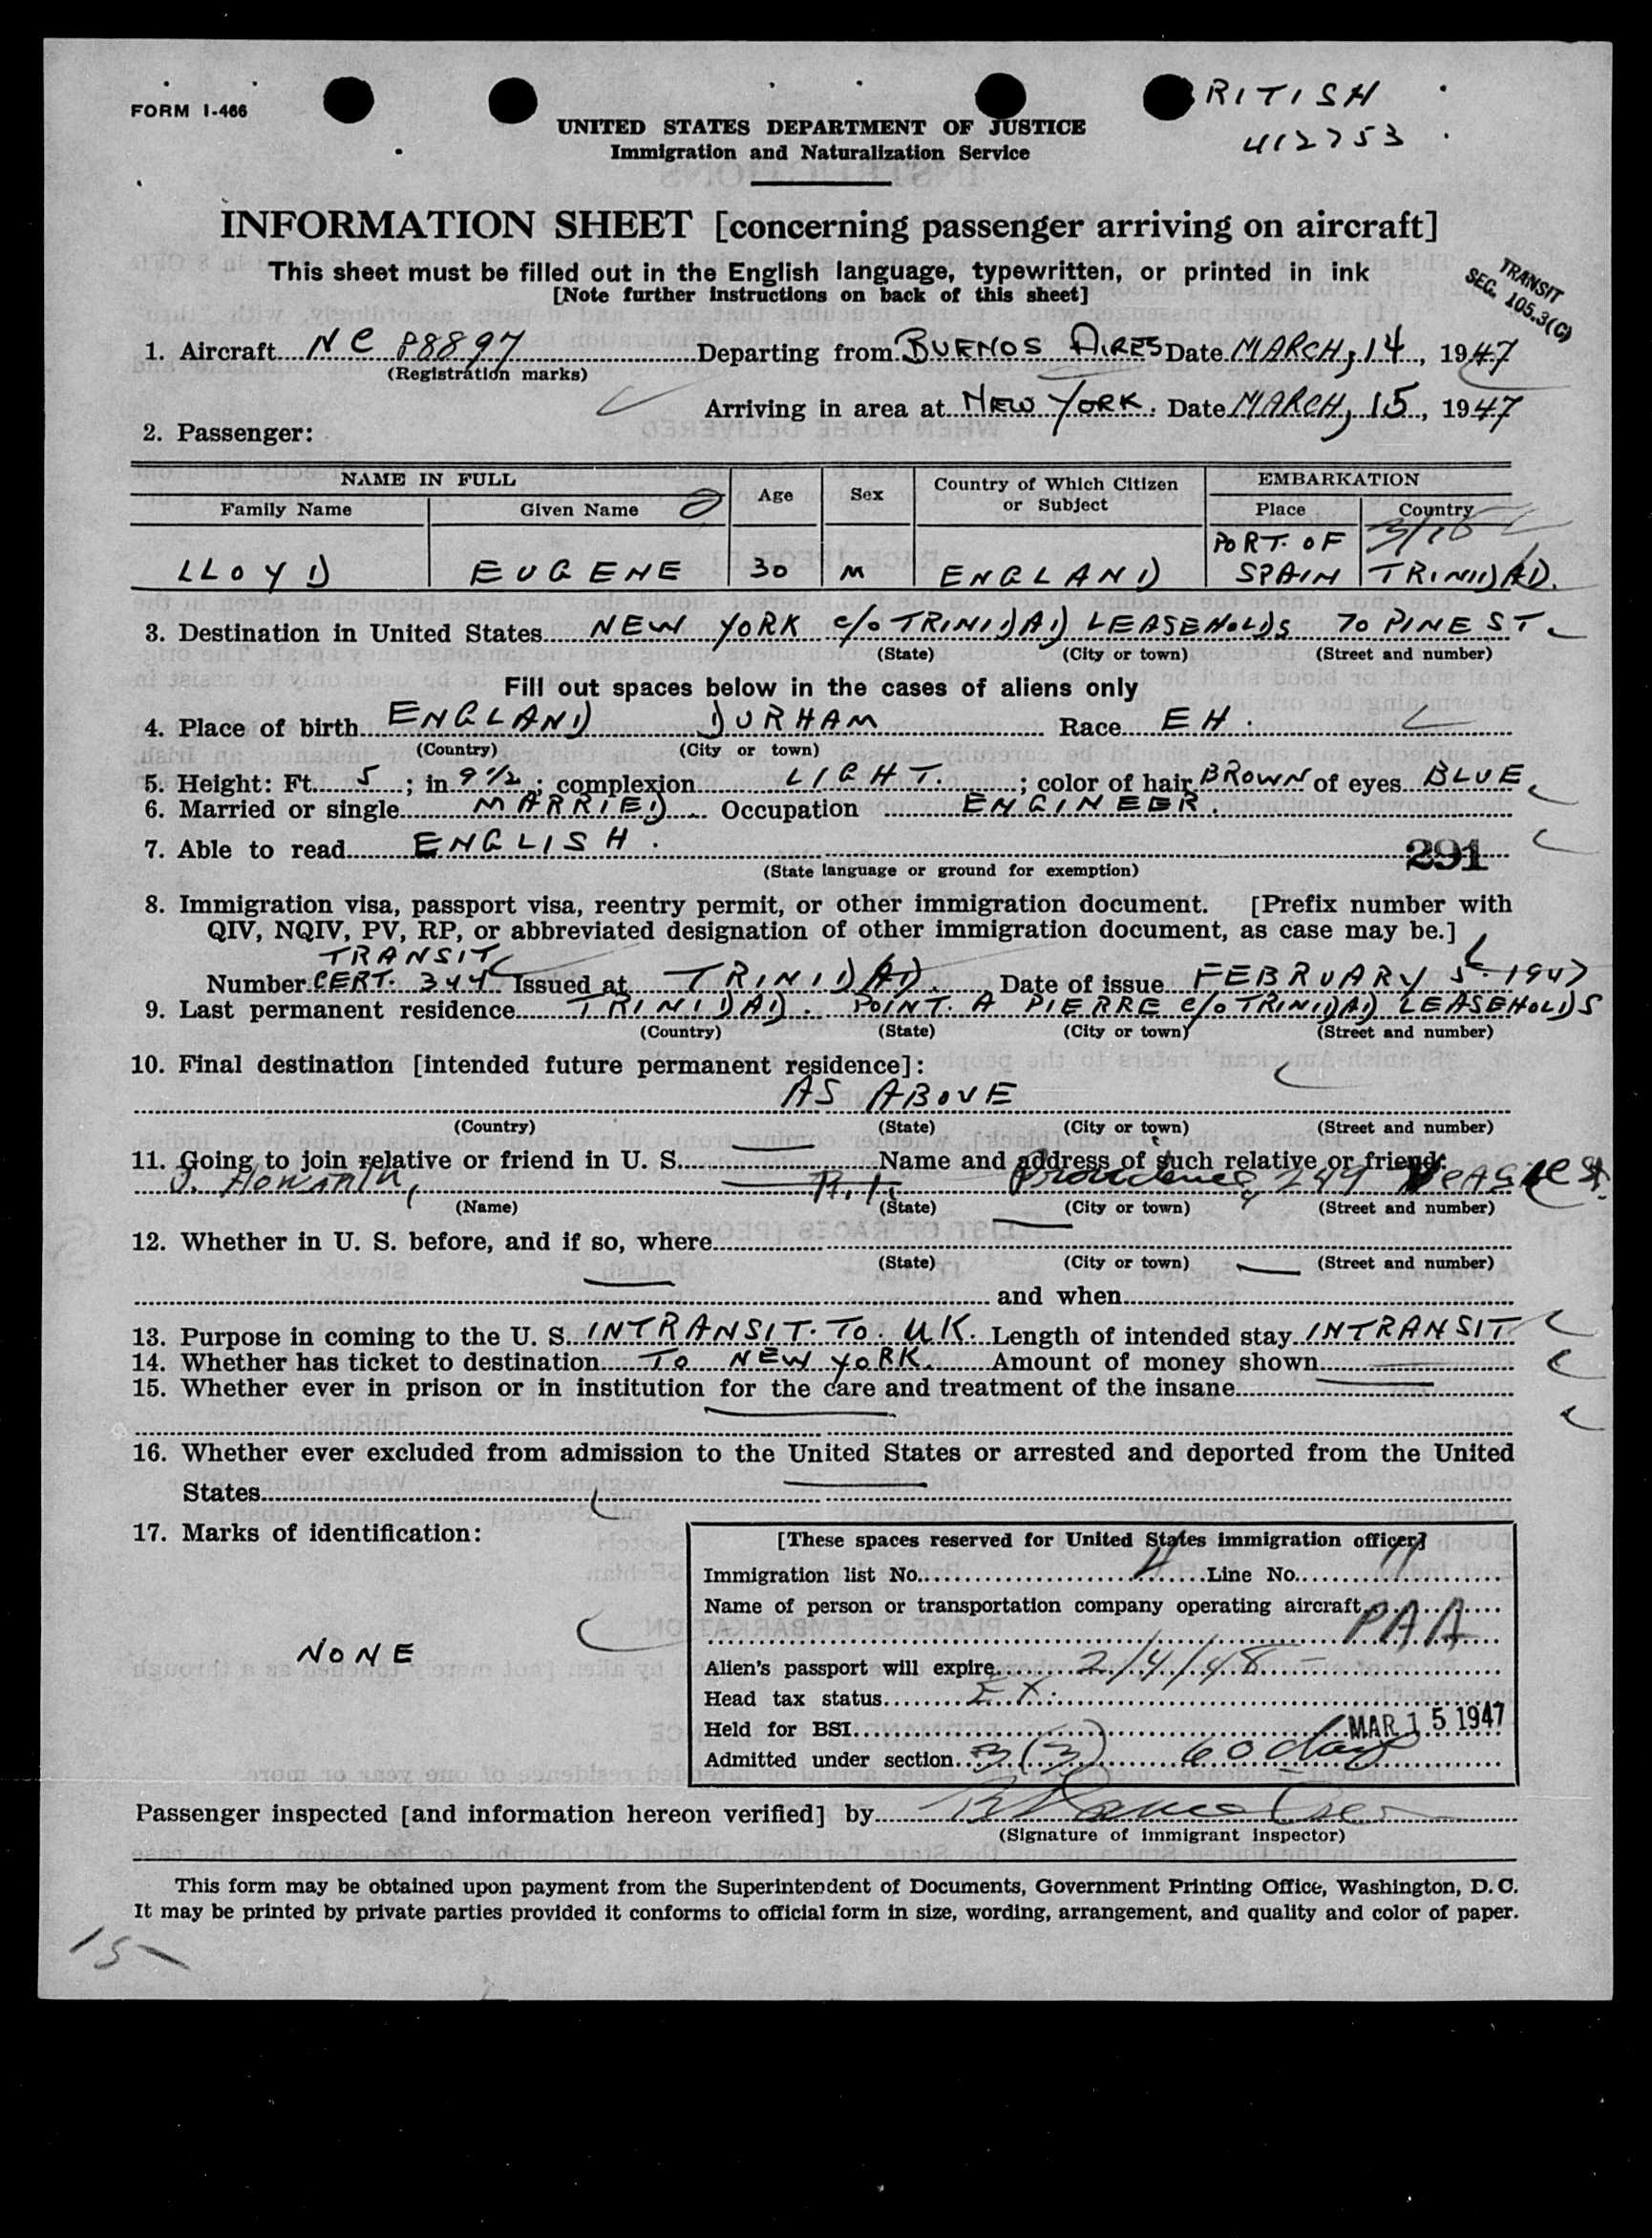 FORM I-466
RITISH
412753
UNITED STATES DEPARTMENT OF JUSTICE
Immigration and Naturalization Service
INFORMATION SHEET [concerning passenger arriving on aircraft]
This sheet must be filled out in the English language, typewritten, or printed in ink
[Note further instructions on back of this sheet]
TRANSIT
SEC. 105.3(C)
1. Aircraft NC 88897 Departing from BUENOS AIRES Date MARCH, 14, 1947
(Registration marks)
Arriving in area at NEW YORK. Date MARCH, 15, 1947
2. Passenger:
NAME IN FULL Age Sex Country of Which Citizen or Subject EMBARKATION
Family Name Given Name Place Country
PORT. OF
LLOYD EUGENE 30 M ENGLAND SPAIN TRINIDAD.
3. Destination in United States NEW YORK c/o TRINIDAD LEASEHOLDS 70 PINE ST.
(State) (City or town) (Street and number)
Fill out spaces below in the cases of aliens only
4. Place of birth ENGLAND DURHAM Race EH.
(Country) (City or town)
5. Height: Ft. 5; in 9 1/2; complexion LIGHT.; color of hair BROWN of eyes BLUE
6. Married or single MARRIED Occupation ENGINEER.
7. Able to read ENGLISH. 291
(State language or ground for exemption)
8. Immigration visa, passport visa, reentry permit, or other immigration document. [Prefix number with
QIV, NQIV, PV, RP, or abbreviated designation of other immigration document, as case may be.]
TRANSIT
Number CERT. 344 Issued at TRINIDAD. Date of issue FEBRUARY 5. 1947
9. Last permanent residence TRINIDAD. POINT. A PIERRE c/o TRINIDAD LEASEHOLDS
(Country) (State) (City or town) (Street and number)
10. Final destination [intended future permanent residence]:
AS ABOVE
(Country) (State) (City or town) (Street and number)
11. Going to join relative or friend in U. S. Name and address of such relative or friend:
J. Howarth, R.I. Providence, 249
(Name) (State) (City or town) (Street and number)
12. Whether in U. S. before, and if so, where
(State) (City or town) (Street and number)
and when
13. Purpose in coming to the U. S. INTRANSIT. TO. UK. Length of intended stay INTRANSIT.
14. Whether has ticket to destination TO NEW YORK. Amount of money shown
15. Whether ever in prison or in institution for the care and treatment of the insane
16. Whether ever excluded from admission to the United States or arrested and deported from the United
States
17. Marks of identification:
NONE
[These spaces reserved for United States immigration officer]
Immigration list No. 4 Line No. 11
Name of person or transportation company operating aircraft
PAA
Alien's passport will expire 2/4/48
Head tax status EX.
Held for BSI MAR 15 1947
Admitted under section 3(3) 60 days
Passenger inspected [and information hereon verified] by
(Signature of immigrant inspector)
This form may be obtained upon payment from the Superintendent of Documents, Government Printing Office, Washington, D. C.
It may be printed by private parties provided it conforms to official form in size, wording, arrangement, and quality and color of paper.
15